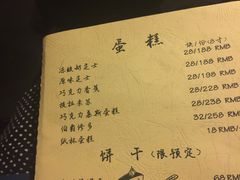 蛋糕
块/份(8寸)
28/188 RMB
法酸奶芝士 28/168 RMB
原味芝士 28/198 RMB
巧克力香蕉 28/228 RMB
提拉米苏 28/238 RMB
巧克力慕斯蛋糕 32/258 RMB
伯爵修多 18 RMB/
纸杯蛋糕
饼干(限预定)